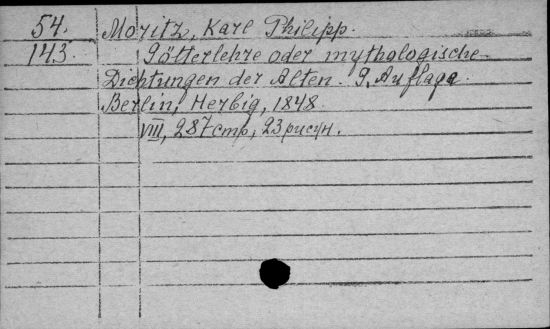 54. Moritz, Karl Philipp.
143. Götterlehre oder mythologische
Dichtungen der Alten. 9. Auflage.
Berlin, Herbig, 1848.
VIII, 287 стр., 23 рисун.